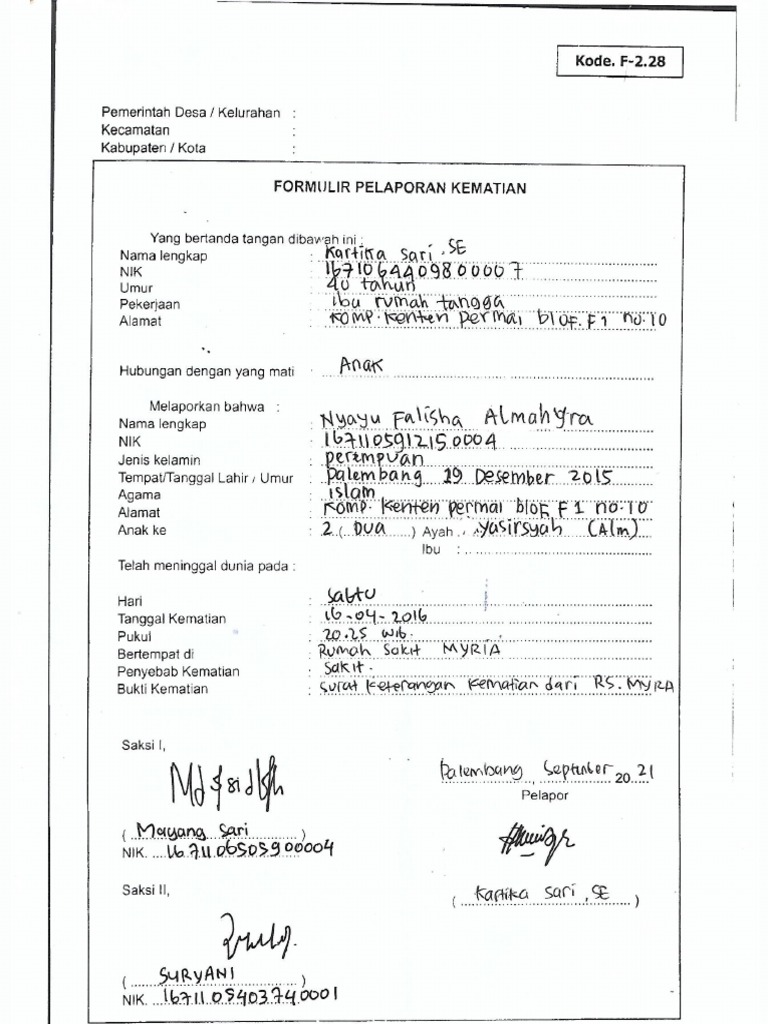 Kode. F-2.28
Pemerintah Desa / Kelurahan :
Kecamatan :
Kabupaten / Kota :
FORMULIR PELAPORAN KEMATIAN
Yang bertanda tangan dibawah ini :
Nama lengkap : Kartika Sari, SE
NIK : 1671064409800007
Umur : 40 tahun
Pekerjaan : ibu rumah tangga
Alamat : Komp. Kenten permai blok. F1 no.10
Hubungan dengan yang mati : Anak
Melaporkan bahwa :
Nama lengkap : Nyayu Falisha Almahyra
NIK : 1671105912150004
Jenis kelamin : perempuan
Tempat/Tanggal Lahir / Umur : palembang 19 Desember 2015
Agama : islam
Alamat : Komp. Kenten permai blok F1 no.10
Anak ke : 2 ( Dua ) Ayah : Yasirsyah (Alm)
Ibu :
Telah meninggal dunia pada :
Hari : Sabtu
Tanggal Kematian : 16-04-2016
Pukul : 20.25 wib.
Bertempat di : Rumah Sakit MYRIA
Penyebab Kematian : Sakit.
Bukti Kematian : Surat Keterangan Kematian dari RS. MYRA
Saksi I,
Palembang, September 2021
Pelapor
( Mayang Sari )
NIK. 1671106505900004
Saksi II,
( Kartika Sari, SE )
( SURYANI )
NIK. 1671105403740001